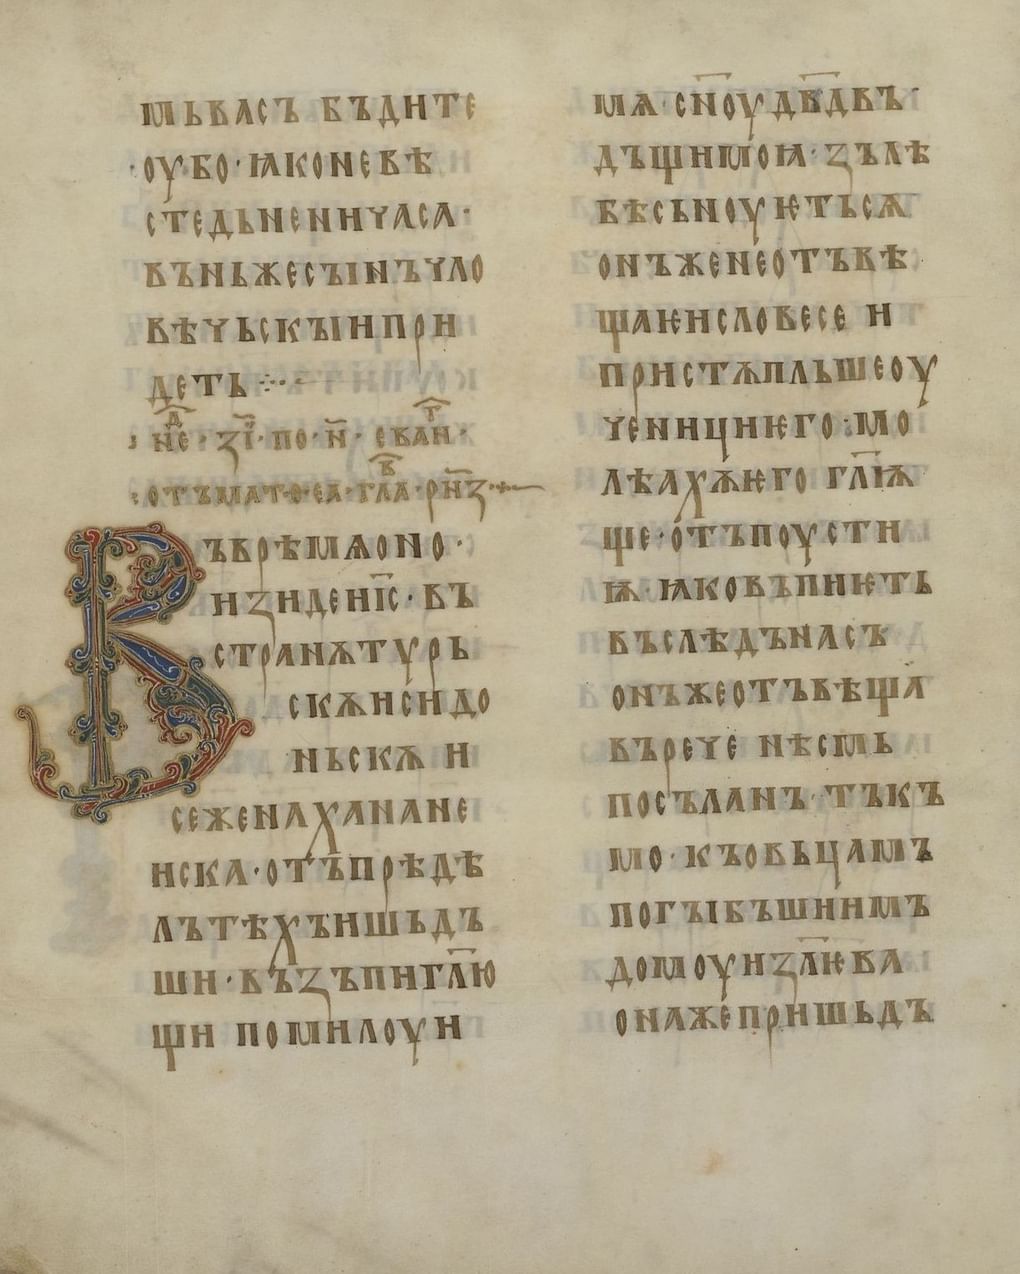 мь васъ бъдите
·оу·бо·ꙗко не вѣ
сте дьне ни часа·
въ ньже сꙑнъ чло
вѣчьскꙑи при
деть
нⷣе · зі҃ · по · н҃ · еваⷩ҇г·
отъ мат·ѳ·еа· глⷡ҇а· рн҃з
Въ врѣмѧ оно·
изиде ні҃с · въ
странѫ турь
скѫ и сидо
ньскѫ и
се жена ханане
иска·отъ прѣдѣ
лъ тѣхъ ишьдъ
ши·възъпи гл҃ю
щи помилоуи
мѧ·сн҃оу дв҃двъ·
дъщи моꙗ·зълѣ
бѣсьноуѥтьсѧ
онъ же не отъвѣ
ща ѥи словесе и
пристѫпльше оу
ченици ѥго·мо
лѣахѫ ѥго гл҃ѭ
ще·отъпоусти
ѭ·ꙗко въпиѥть
въслѣдъ насъ
онъ же отъвѣща
въ рече нѣсмь
посъланъ·тъкъ
мо·къ овьцамъ
погꙑбъшиимъ
домоу из҃лѥва
она же пришьдъ